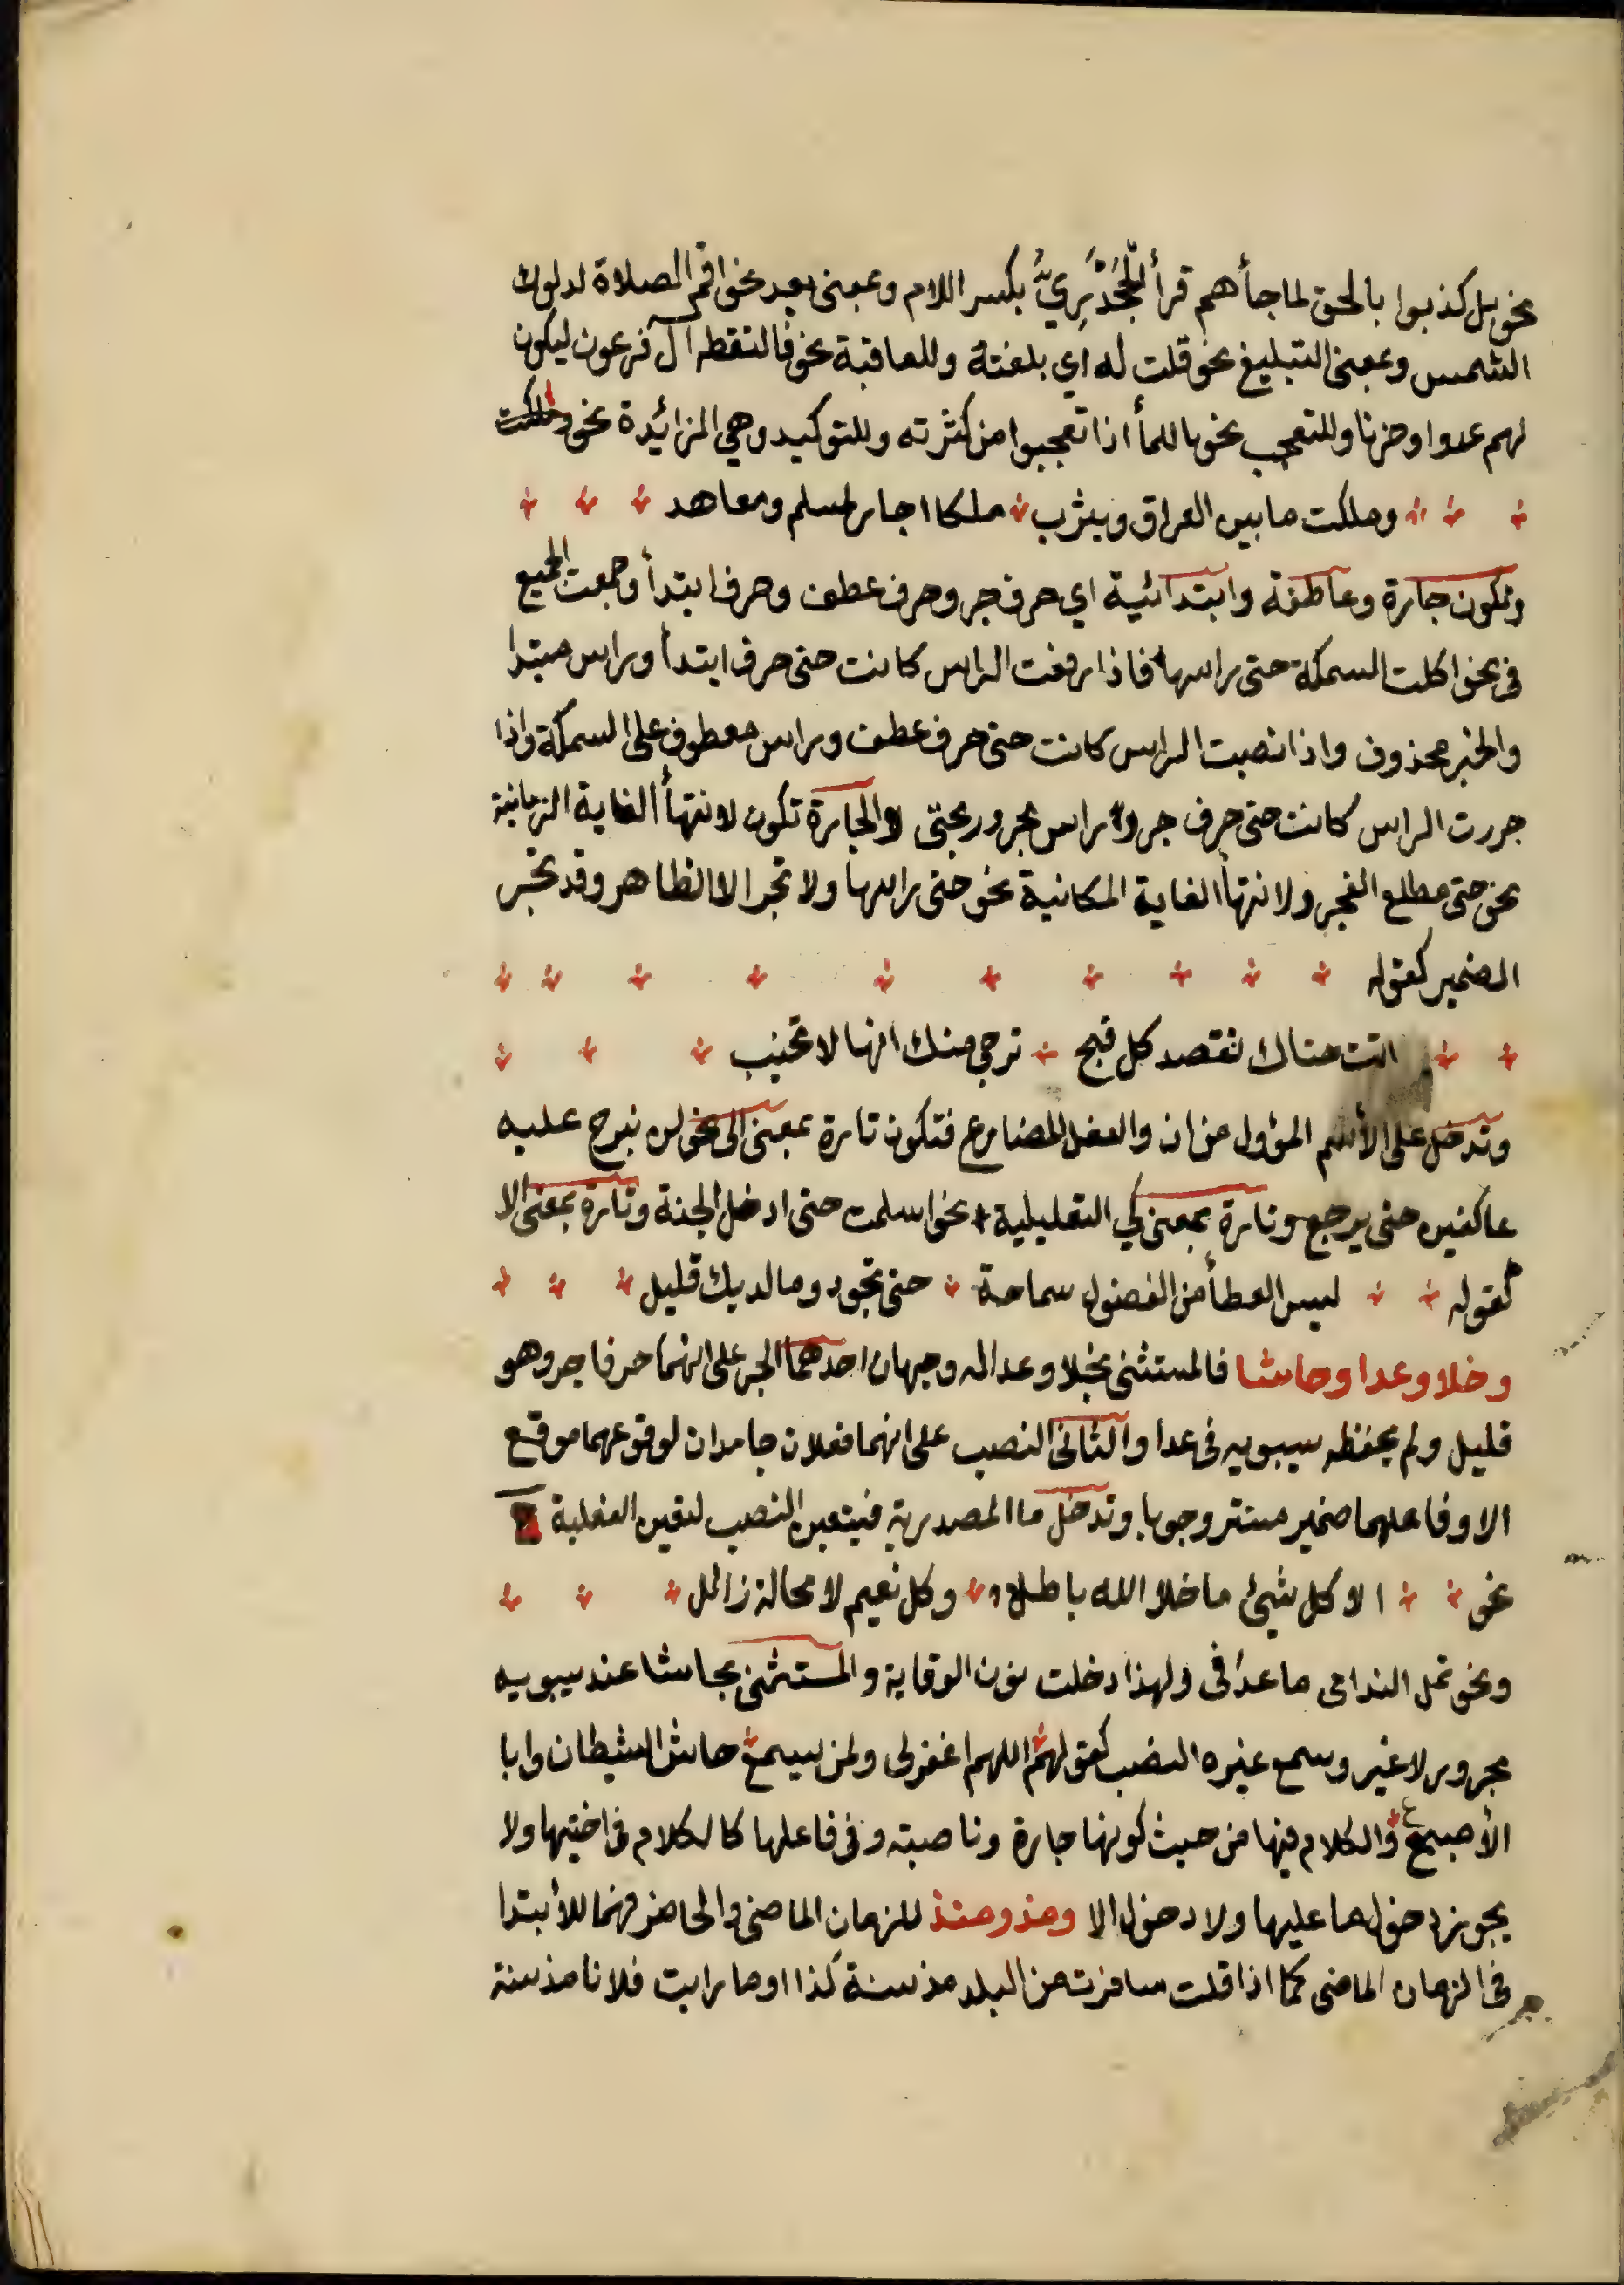 نحو بل كذبوا بالحق لما جأهم قرأ الجُحْدَرِيُّ بكسر اللام وبمعنى بعد نحو اقم الصلاة لدلوك
الشمس وبمعنى التبليغ نحو قلت له اي بلغته وللعاقبة نحو فالتقطه آل فرعون ليكون
لهم عدوا وحزنا وللتعجب نحو ياللمأ اذا تعجبوا من كثرته وللتوكيد وهي الزائدة نحو وملكت
وملكت ما بين العراق ويثرب ملكا اجار لمسلم ومعاهد
وتكون جارة وعاطفة وابتدائية اي حرف جر وحرف عطف وحرف ابتدأ وجمعت الجميع
في نحو اكلت السمكة حتى راسها فاذا رفعت الراس كانت حتى حرف ابتدأ وراس مبتدا
والخبر محذوف واذا نصبت الراس كانت حتى حرف عطف وراس معطوف على السمكة واذا
جررت الراس كانت حتى حرف جر وراس مجرور بحتى والجارة تكون لانتهأ الغاية الزمانية
نحو حتى مطلع الفجر ولانتهأ الغاية المكانية نحو حتى راسها ولا تجر الا الظاهر وقد تجر
الضمير كقوله
اتت حتاك تقصد كل فج ترجي منك انها لا تخيب
وتدخل على الأسم المؤول من ان والفعل المضارع فتكون تارة بمعنى الى نحو لن نبرح عليه
عاكفين حتى يرجع وتارة بمعنى كي التعليلية نحو اسلمت حتى ادخل الجنة وتارة بمعنى الا
كقوله ليس العطأ من الفضول سماحة حتى تجود وما لديك قليل
وخلا وعدا وحاشا فالمستثنى بخلا وعدا له وجهان احدهما الجر على انهما حرفا جر وهو
قليل ولم يحفظه سيبويه في عدا والثاني النصب على انهما فعلان جامدان لوقوعهما موقع
الا وفاعلهما ضمير مستتر وجوبا وتدخل ما المصدرية فيتعين النصب لتعين الفعلية
نحو الا كل شيئ ما خلا الله باطل وكل نعيم لا محالة زائل
ونحو تمل الندامى ما عداني ولهذا دخلت نون الوقاية والمستثنى بحاشا عند سيبويه
مجرور لا غير وسمع غيره النصب كقولهم اللهم اغفر لي ولمن يسمع حاش الشيطان وابا
الأصبع والكلام فيها من حيث كونها جارة وناصبته وفي فاعلها كالكلام في اختيها ولا
يجوز دخول ما عليها ولا دخول الا ومذ ومنذ للزمان الماضي والحاضر فهما للأبتدا
في الزمان الماضي كما اذا قلت سافرت من البلد مذ سنة كذا او ما رايت فلانا مذ سنة